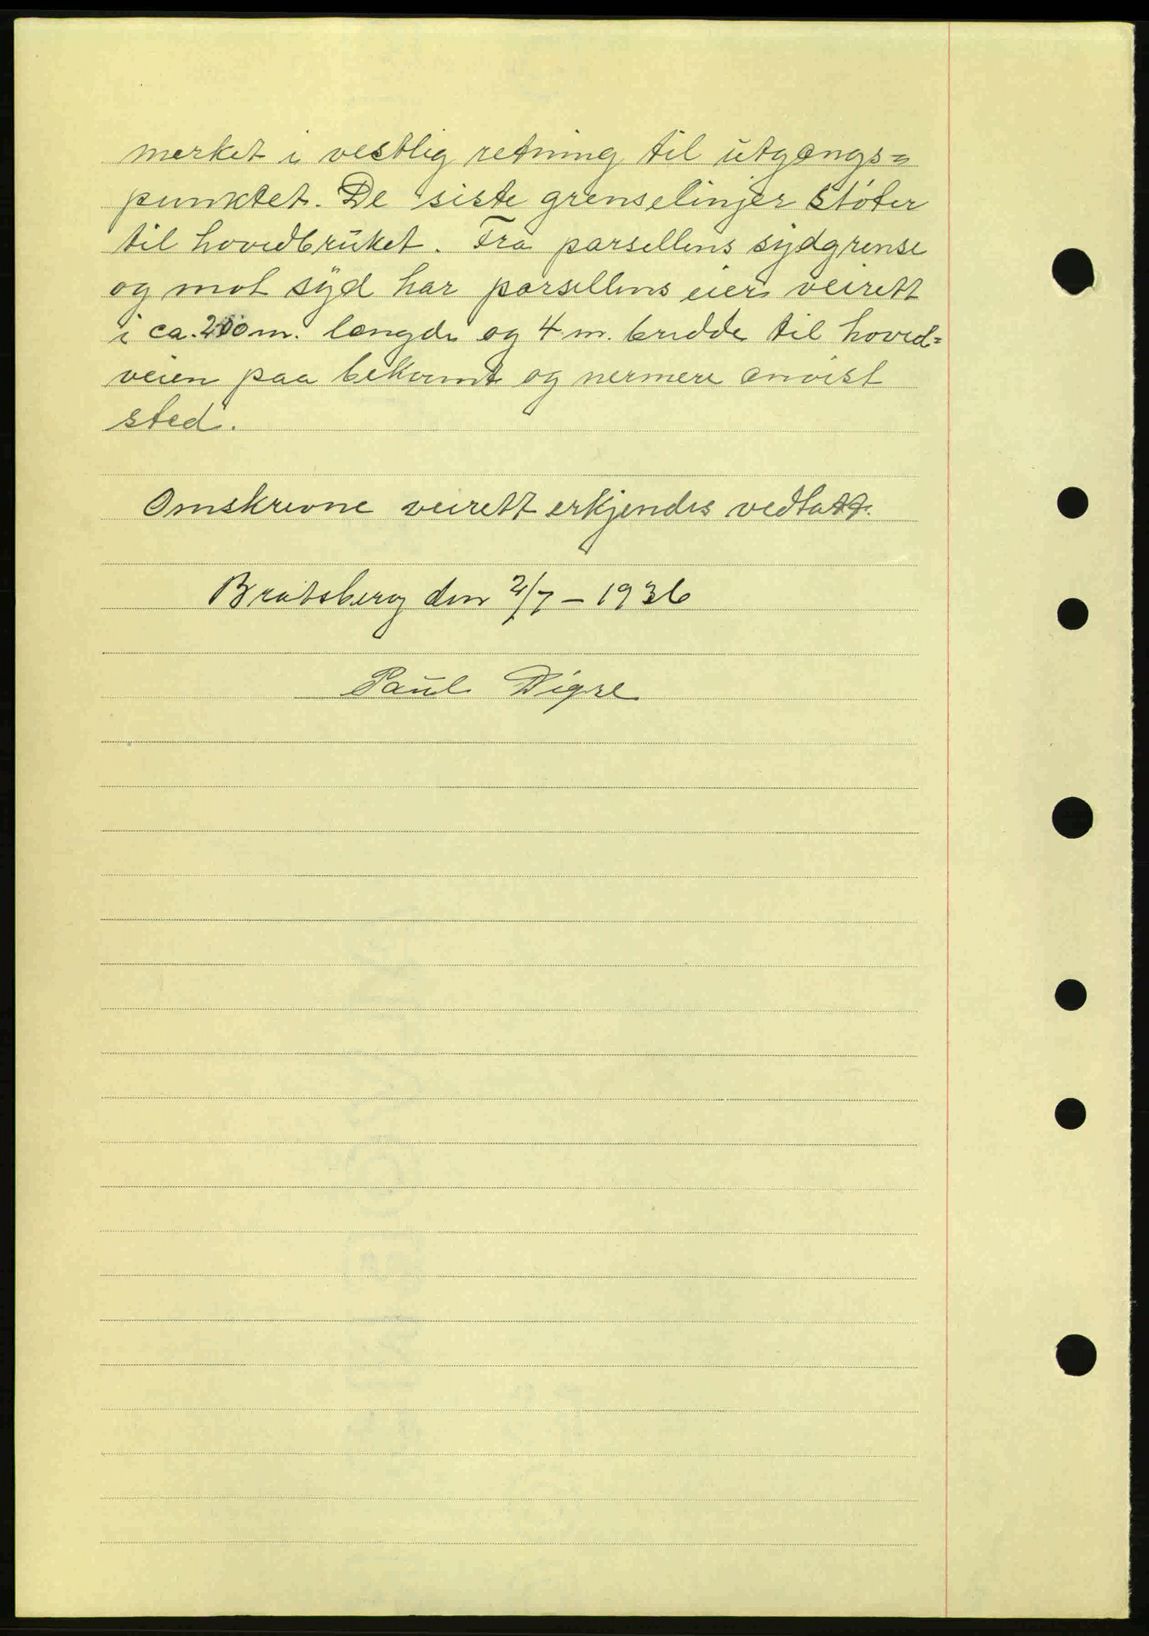 merket i vestlig retning til utgangs=
punktet. De siste grenselinjer støter
til hovedbruket. Fra parsellens sydgrense
og mot syd har parsellens eier veirett
i ca. 200 m. længde og 4 m. bredde til hoved=
veien paa bekvemt og nermere anvist
sted.
Omskrevne veirett erkjendes vedtatt.
Bratsberg den 2/7 – 1936
Paul Digre